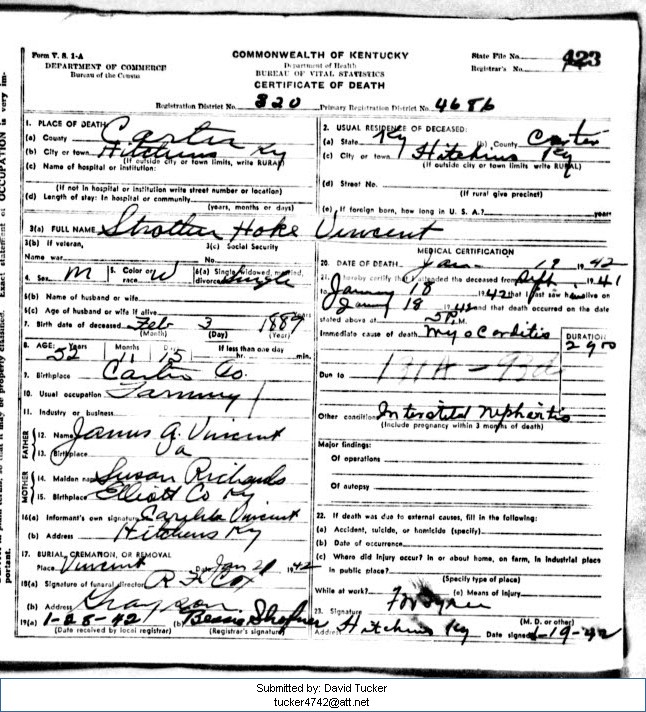 Form V. S. 1-A
DEPARTMENT OF COMMERCE
Bureau of the Census
COMMONWEALTH OF KENTUCKY
Department of Health
BUREAU OF VITAL STATISTICS
CERTIFICATE OF DEATH
State File No. 423
Registrar's No.
Registration District No. 320 Primary Registration District No. 4686
1. PLACE OF DEATH
(a) County Carter
(b) City or town Hitchins Ky
(If outside city or town limits, write RURAL)
(c) Name of hospital or institution:
(If not in hospital or institution write street number or location)
(d) Length of stay: In hospital or community
(years, months or days)
2. USUAL RESIDENCE OF DECEASED:
(a) State Ky (b) County Carter
(c) City or town Hitchins Ky
(If outside city or town limits, write RURAL)
(d) Street No.
(If rural give precinct)
(e) If foreign born, how long in U. S. A.? years
3(a) FULL NAME Hoke Vincent
3(b) If veteran, 3(c) Social Security
Name war No.
4. Sex M 5. Color or race W 6(a) Single, widowed, married, divorced Single
6(b) Name of husband or wife
6(c) Age of husband or wife if alive Years
7. Birth date of deceased Feb 3 1889
(Month) (Day) (Year)
8. AGE: Years Months Days If less than one day
52 11 15 hr. min.
9. Birthplace Carter Co.
10. Usual occupation
11. Industry or business
FATHER
12. Name James A. Vincent
13. Birthplace Va
MOTHER
14. Maiden name Susan Richards
15. Birthplace Elliott Co Ky
16(a) Informant's own signature Vincent
(b) Address Hitchins Ky
17. BURIAL, CREMATION, OR REMOVAL
Place Vincent Date Jan 21 1942
18(a) Signature of funeral director R. F. Cox
(b) Address Grayson
19(a) 1-28-42 (b) Bessie
(Date received by local registrar) (Registrar's signature)
MEDICAL CERTIFICATION
20. DATE OF DEATH Jan 19 1942
21. I hereby certify that I attended the deceased from Sept 1941
18 1942 that I last saw alive on
18 1942 and that death occurred on the date
stated above at 5P M.
Immediate cause of death Myocarditis
DURATION
Due to
Other conditions Interstitial Nephritis
(Include pregnancy within 3 months of death)
Major findings:
Of operations
Of autopsy
22. If death was due to external causes, fill in the following:
(a) Accident, suicide, or homicide (specify)
(b) Date of occurrence
(c) Where did injury occur? In or about home, on farm, in industrial place
in public place?
(Specify type of place)
While at work? (e) Means of injury
23. Signature
(M. D. or other)
Address Hitchins Ky Date signed 1-19-42
Submitted by: David Tucker
tucker4742@att.net